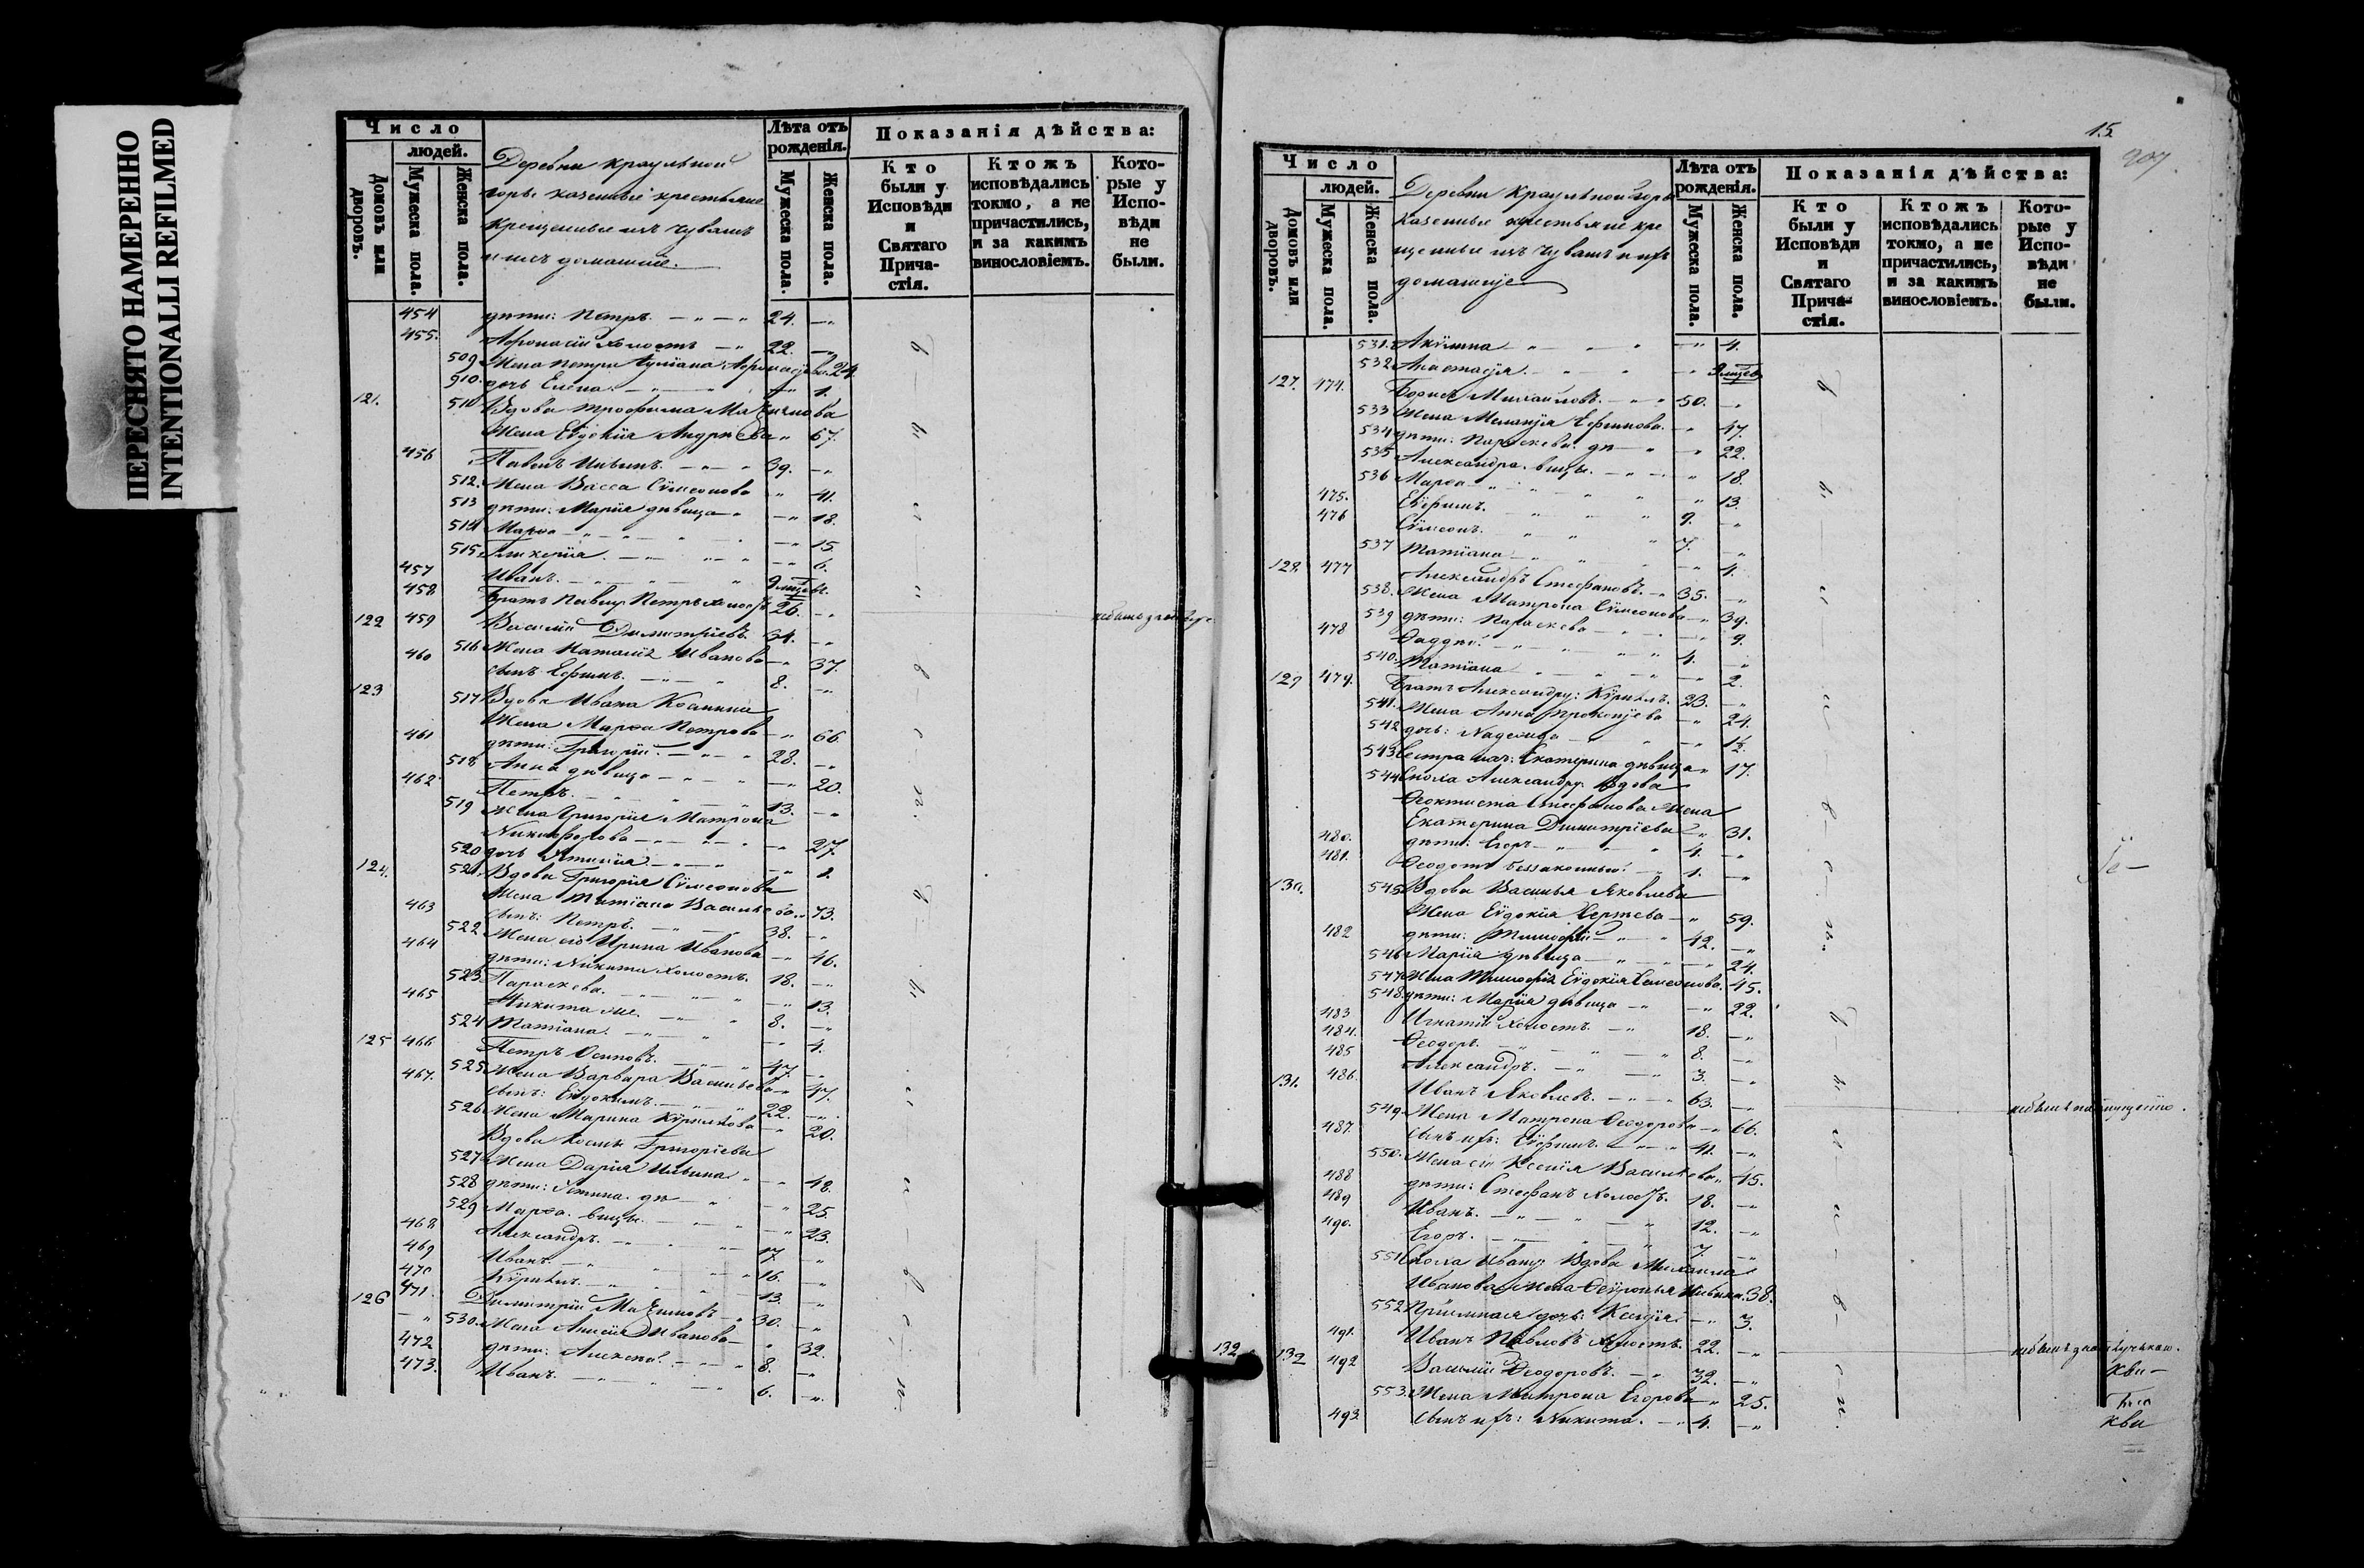 ПЕРЕСНЯТО НАМЕРЕННО
INTENTIONALLI REFILMED
Число
людей.
Домовъ или дворовъ.
Мужеска пола.
Женска пола.
Деревни Краульной
горы казенные крестьяне
крещенные изъ чувашъ
и ихъ домашніе.
Лѣта отъ рожденія.
Мужеска пола.
Женска пола.
Показанія дѣйства:
Кто были у Исповѣди и Святаго Причастія.
Ктожъ исповѣдались токмо, а не причастились, и за какимъ винословіемъ.
Которые у Исповѣди не были.
454 дѣти: Петръ. 24.
455. Афонасій холостъ 22.
509 Жена Петра Афонасьева 24.
510. дочь Елена. 1.
121. 511 Вдова Трофима
Жена Евдокія Андреева 67.
456 Павелъ Ильинъ. 39.
512. Жена Васса Сѵмеонова 41.
513 дѣти: Марія дѣвица 18.
514 Марѳа 15.
515. Гликерія. 6.
457 Иванъ. 9 мцевъ.
458 Братъ Павлу Петръ холостъ 26.
122 459 Василій Димитріевъ 34.
516 Жена Наталія Иванова 37.
460 сынъ Ефимъ. 8.
123 517 Вдова Ивана Косьмина
Жена Марѳа Петрова 66.
461 дѣти: Григорій. 28.
518 Анна дѣвица 20.
462 Петръ. 13.
519 Жена Григорія Матрона
Никифорова 27.
520 дочь 1.
124. 521. Вдова Григорія Сѵмеонова
Жена Татіана Васильева 73.
463 сынъ: Петръ. 38.
522 Жена его Ирина Иванова 46.
464 дѣти: Никита холостъ. 18.
523 Параскева. 13.
465 Никита же. 8.
524 Татіана. 4.
125 466 Петръ Осиповъ. 47.
525 Жена Варвара Васильева 47.
467. сынъ: Евдокимъ. 22.
526 Жена Марина Кѵрилова 20.
Вдова Косьмы Григоріева
527 Жена Дарія Ильина 48.
528 дѣти: дѣ 25.
529 Марѳа. вицы. 23.
468 Александръ. 17.
469 Иванъ. 16.
470 Кѵрилъ. 13.
126 471. Димитрій 30.
530. Жена Анисія Иванова 32.
472 дѣти: Алексѣй. 8.
473. Иванъ. 6.
15.
207
Число
людей.
Домовъ или дворовъ.
Мужеска пола.
Женска пола.
Деревни Краульной горы
казенные крестьяне кре
щенные изъ чувашъ и ихъ
домашніе
Лѣта отъ рожденія.
Мужеска пола.
Женска пола.
Показанія дѣйства:
Кто были у Исповѣди и Святаго Причастія.
Ктожъ исповѣдались токмо, а не причастились, и за какимъ винословіемъ.
Которые у Исповѣди не были.
531. Акѵлина 4.
532 Анастасія. 9 мцевъ
127. 474. Борисъ Михайловъ. 50.
533 Жена Меланія Ефимова. 47.
534 дѣти: Параскева. дѣ 22.
535 Александра. вицы. 18.
536 Марѳа 13.
475. Евѳимъ. 9.
476 Сѵмеонъ. 7.
537 Татіана 4.
128. 477 Александръ Стефановъ. 35.
538. Жена Матрона Сѵмеонова 39.
539 дѣти: Параскева 9.
478 Ѳаддей. 4.
540. Татіана 2.
129 479. Братъ Александру: Кѵрилъ. 23.
541. Жена Анна Прокопьева 24.
542 дочь: Надежда 1½.
543 Сестра ихъ: Екатерина дѣвица 17.
544 Сноха Александру. Вдова
Ѳеоктиста Стефанова Жена
Екатерина Димитріева 31.
480. дѣти: Егоръ 4.
481. Ѳеодотъ беззаконный 1.
130. 545 Вдова Василья Яковлева
Жена Евдокія Сергеева 59.
482 дѣти: Тимофей 42.
546 Марія дѣвица 24.
547 Жена Тимофея Евдокія Семенова. 45.
548. дѣти: Марія дѣвица 22.
483 Игнатій холостъ. 18.
484. Ѳеодоръ. 8.
485 Александръ. 3.
131. 486. Иванъ Яковлевъ. 63.
549. Жена Матрона Ѳеодорова 66.
487. сынъ ихъ: Евѳимъ. 41.
550. Жена его Ксенія Васильева 45.
488 дѣти: Стефанъ холостъ. 18.
489 Иванъ. 12.
490. Егоръ. 7.
551 Сноха Ивану Вдова Михаила
Иванова Жена Ѳевронья Ильина. 38.
552 Пріемная дочь: Ксенія 3.
491. Иванъ Павловъ холостъ. 22.
132 132 492 Василій Ѳеодоровъ. 32.
553. Жена Матрона Егорова 25.
493 сынъ ихъ: Никита. 4.